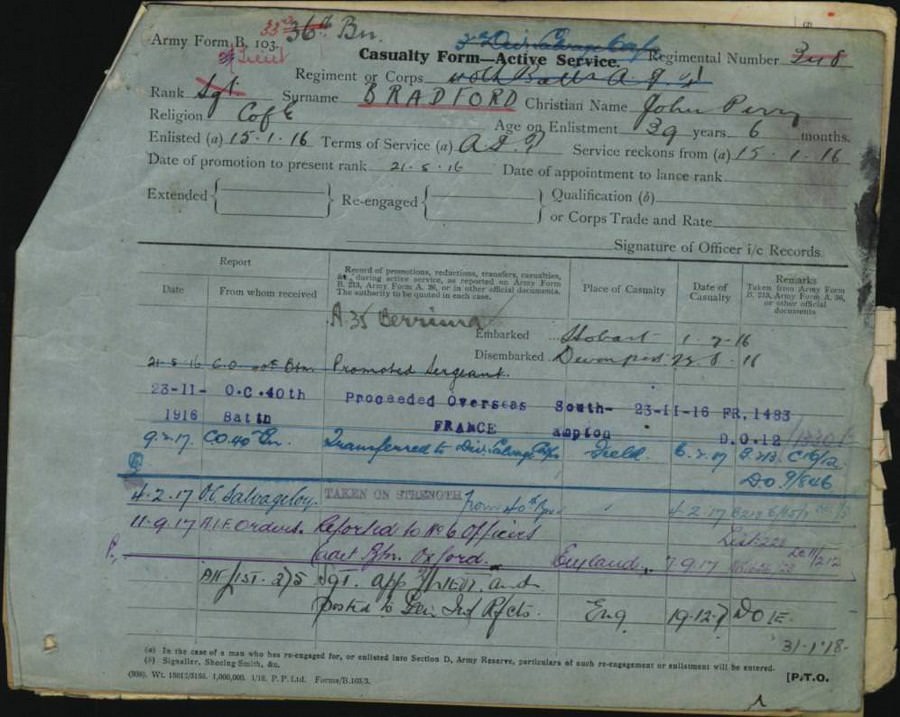 33rd 36th Bn.
Army Form B. 103.
Casualty Form—Active Service.
Regimental Number
Lieut
Regiment or Corps 40th Battn A I F
Rank Sgt Surname BRADFORD Christian Name John Percy
Religion C of E Age on Enlistment 39 years 6 months.
Enlisted (a) 15.1.16 Terms of Service (a) Service reckons from (a) 15.1.16
Date of promotion to present rank 21.5.16 Date of appointment to lance rank
Extended Re-engaged Qualification (b)
or Corps Trade and Rate
Signature of Officer i/c Records.
Report
Date From whom received
Record of promotions, reductions, transfers, casualties,
&c., during active service, as reported on Army Form
B. 213, Army Form A. 36, or in other official documents.
The authority to be quoted in each case.
Place of Casualty
Date of
Casualty
Remarks
Taken from Army Form
B. 213, Army Form A. 36,
or other official
documents
A.35 Berrima
Embarked Hobart 1.7.16
Disembarked Devonport 22.8.16
21.5.16 C.O. 40th Btn. Promoted Sergeant.
23-11- O.C. 40th Proceeded Overseas South- 23-11-16 FR. 1483
1916 Battn FRANCE ampton D.O.12
9.2.17 CO 40 Bn. Transferred to Div. Salvage Coy Field 6.2.17 B.213
DO 9/846
4.2.17 O.C. Salvage Coy. TAKEN ON STRENGTH from 40th Bn 4.2.17
11.9.17 A.I.F. Orders. Reported to No 6 Officers
Cadet Btn. Oxford. England 7.9.17
AIF List. 275 Sgt. app 2/Lieut. and
posted to Gen. Inf Rfcts. Eng 19.12.7 DO IE
31-1-18-
(a) In the case of a man who has re-engaged for, or enlisted into Section D, Army Reserve, particulars of such re-engagement or enlistment will be entered.
(b) Signaller, Shoeing-Smith, &c.
1,000,000. 1/16. P.P. Ltd. Forms/B.103/3.
[P.T.O.